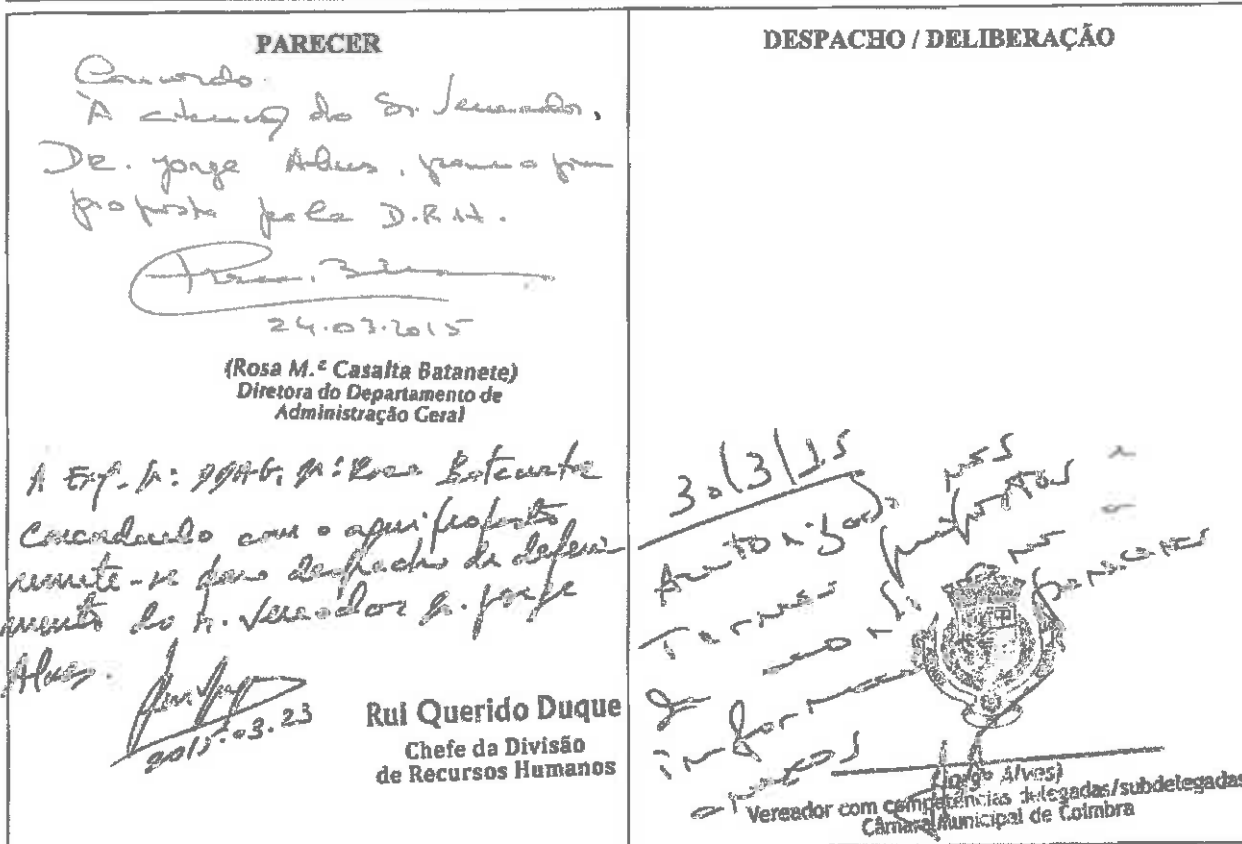 PARECER
Concordo.
À atenção do Sr. Vereador,
DR. Jorge Alves, para o fim
proposto pela D.R.H.
24.03.2015
(Rosa M.ª Casalta Batanete)
Diretora do Departamento de
Administração Geral
Concordando com o aqui proposto
remete-se para despacho de deferi
mento do Sr. Vereador Dr. Jorge
Alves.
2015.03.23
Rui Querido Duque
Chefe da Divisão
de Recursos Humanos
DESPACHO / DELIBERAÇÃO
30/3/15
Autorizo, nos
Termos propostos
informação
pareceres
(Jorge Alves)
Vereador com competências delegadas/subdelegadas
Câmara Municipal de Coimbra